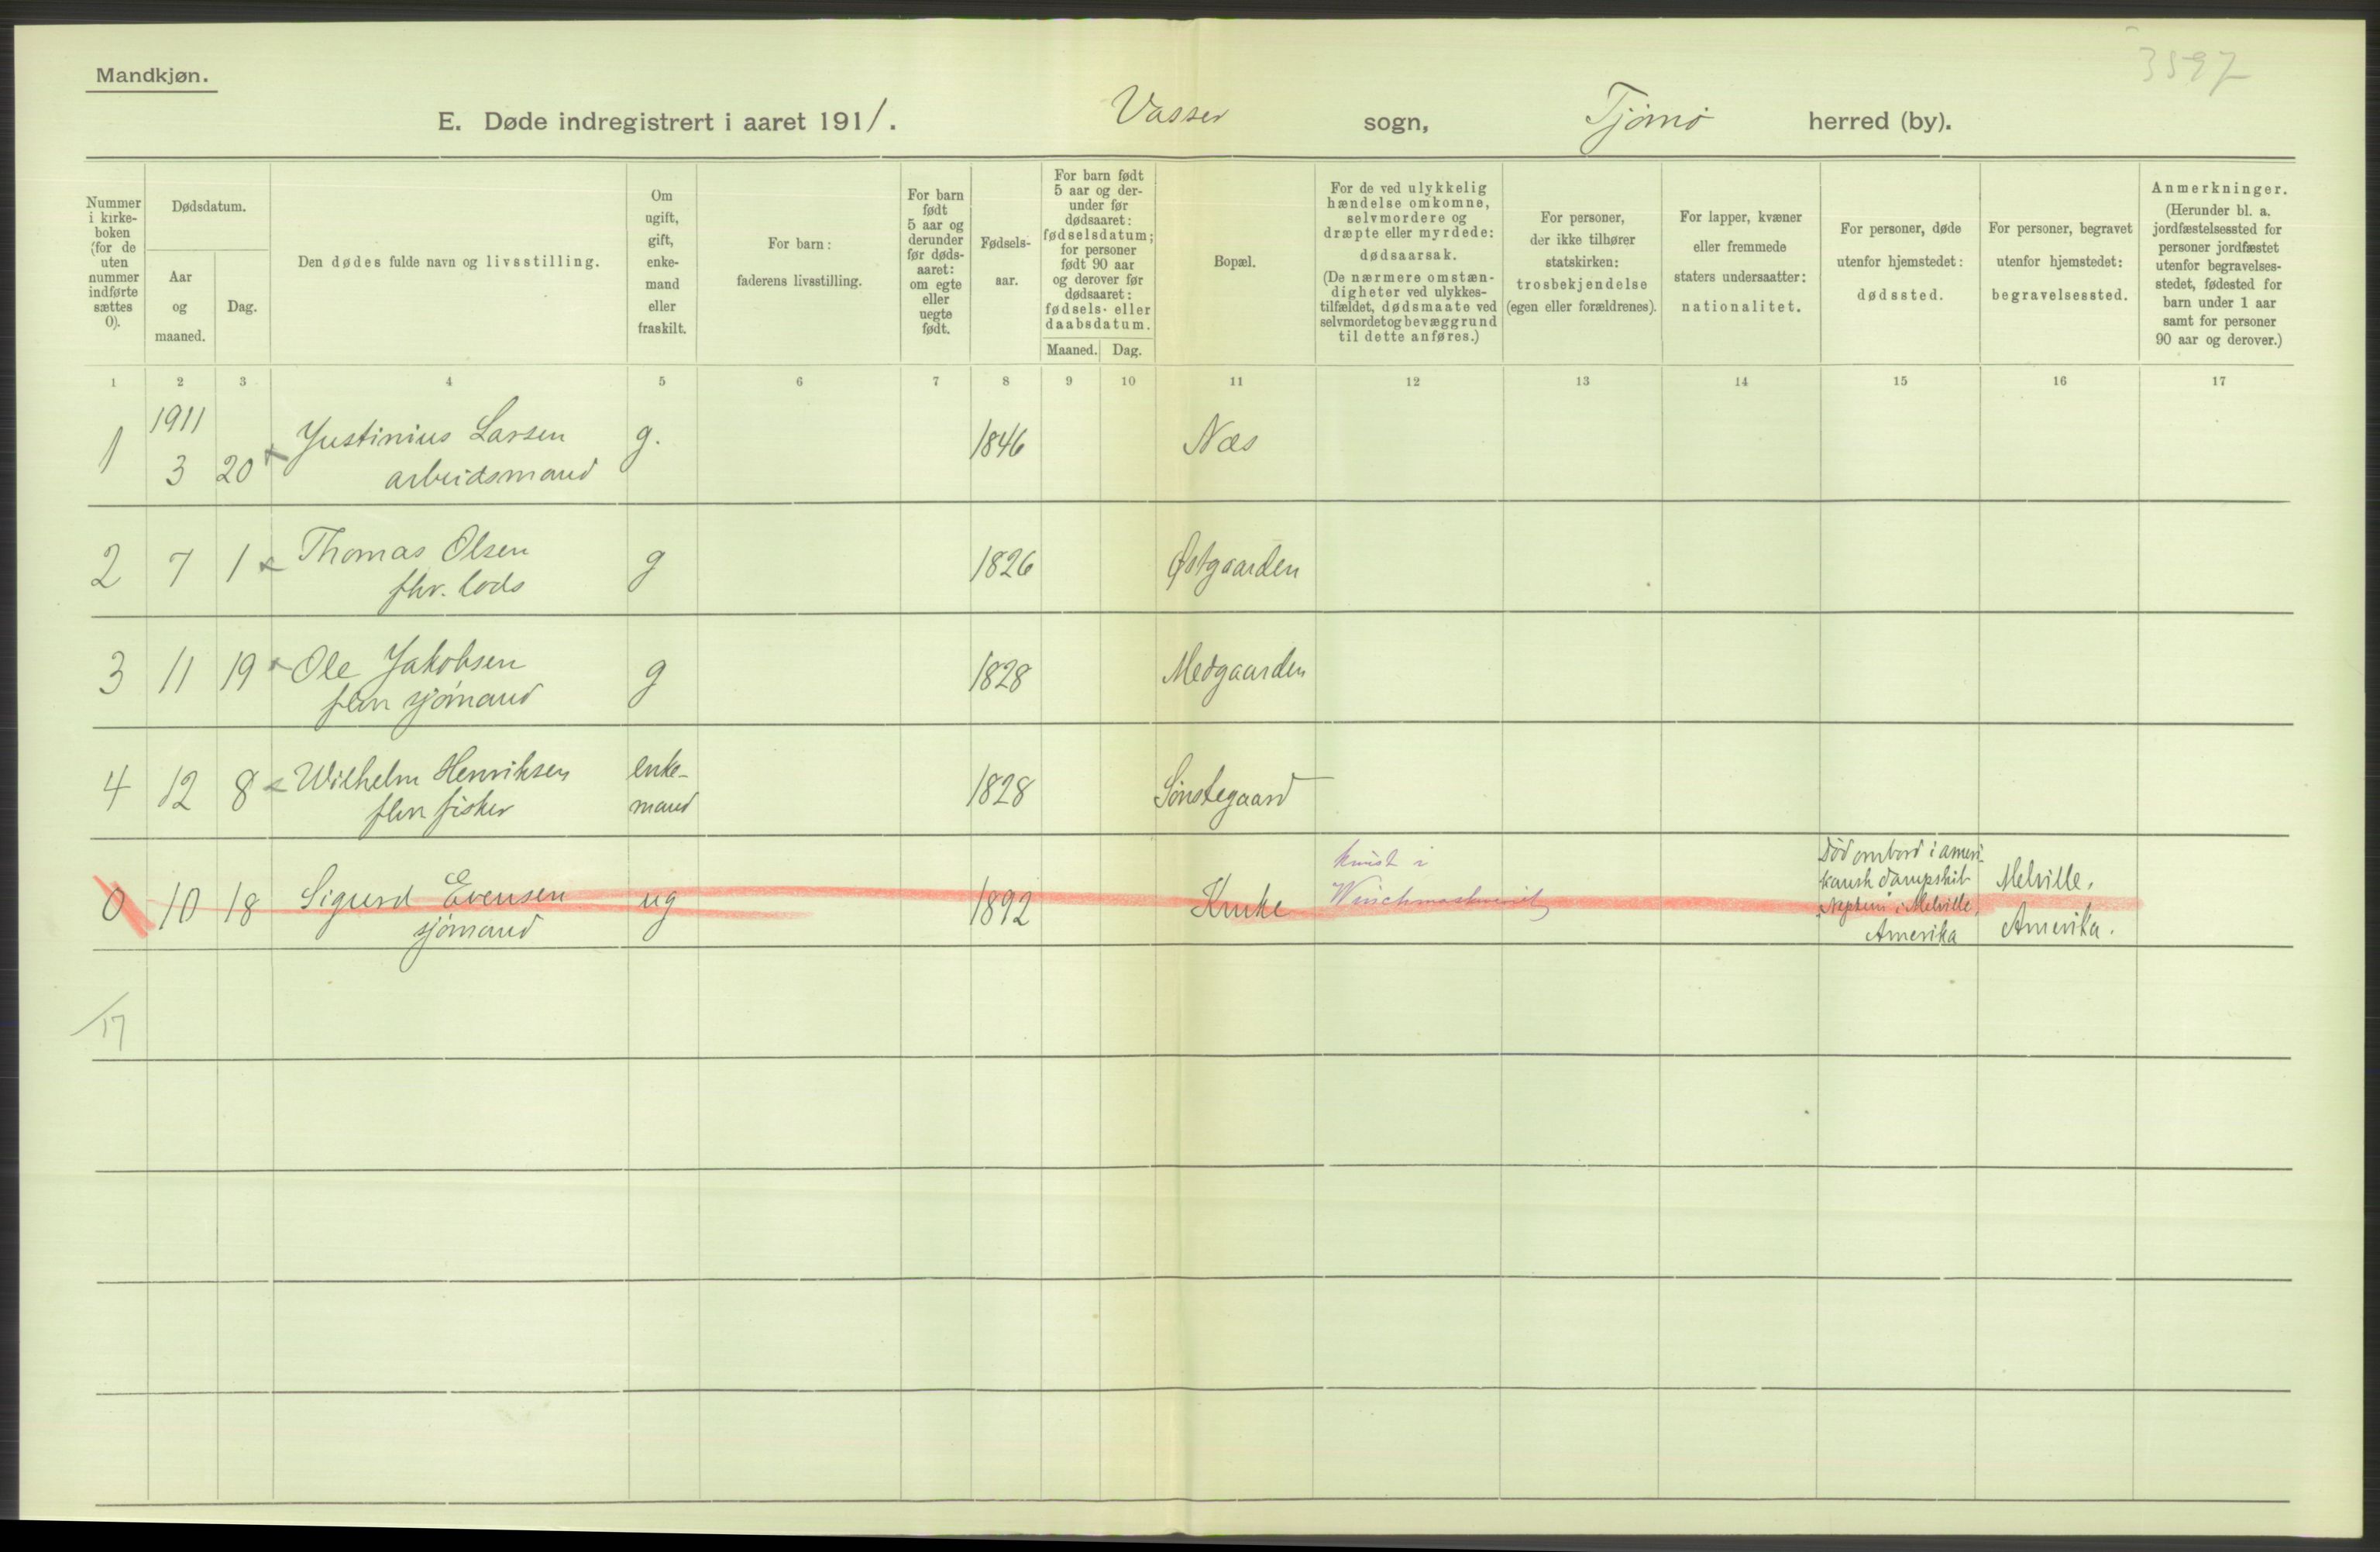 Mandkjøn.
3597
E. Døde indregistrert i aaret 1911. Vasser sogn, Tjømø herred (by).
Nummer i kirke-boken (for de uten nummer indførte sættes 0).
Dødsdatum.
Aar og maaned.
Dag.
Den dødes fulde navn og livsstilling.
Om ugift, gift, enke-mand eller fraskilt.
For barn: faderens livsstilling.
For barn født 5 aar og derunder før døds-aaret: om egte eller uegte født.
Fødsels-aar.
For barn født 5 aar og der-under før dødsaaret: fødselsdatum; for personer født 90 aar og derover før dødsaaret: fødsels- eller daabsdatum.
Maaned. Dag.
Bopæl.
For de ved ulykkelig hændelse omkomne, selvmordere og dræpte eller myrdede: dødsaarsak. (De nærmere omstæn-digheter ved ulykkes-tilfældet, dødsmaate ved selvmord et og bevæggrund til dette anføres.)
For personer, der ikke tilhører statskirken: trosbekjendelse (egen eller forældrenes).
For lapper, kvæner eller fremmede staters undersaatter: nationalitet.
For personer, døde utenfor hjemstedet: dødssted.
For personer, begravet utenfor hjemstedet: begravelsessted.
Anmerkninger. (Herunder bl. a. jordfæstelsessted for personer jordfæstet utenfor begravelses-stedet, fødested for barn under 1 aar samt for personer 90 aar og derover.)
1 2 3 4 5 6 7 8 9 10 11 12 13 14 15 16 17
1911
1 3 20 Justinius Larsen g. 1846 Næs
arbeidsmand
2 7 1 Thomas Olsen g 1826 Østgaarden
fhv. lods
3 11 19 Ole Jakobsen g 1828 Medgaarden
fhv sjømand
4 12 8 Wilhelm Henriksen enke-mand 1828 Sønstegaard
fhv fisker
0 10 18 Sigurd Evensen ug 1892 Kruke knust i Winchmaskineriet Død ombord i ameri-kansk dampskib "Neptun" i Melville, Amerika Melville, Amerika.
sjømand
17